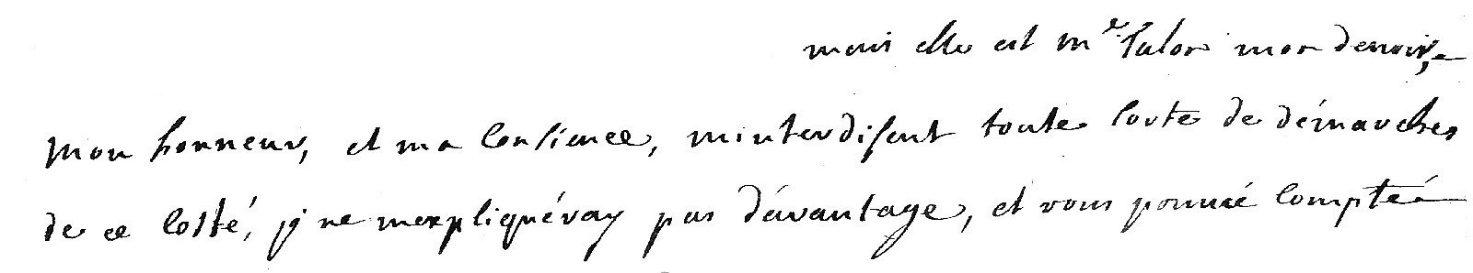 mais elle est m.e Talon mon devoir,
mon honneur, et ma Consience, minterdisent toutes sorte de démarches
de ce Costé, je ne m'expliquéray pas dávantage, et vous pouvié Compté